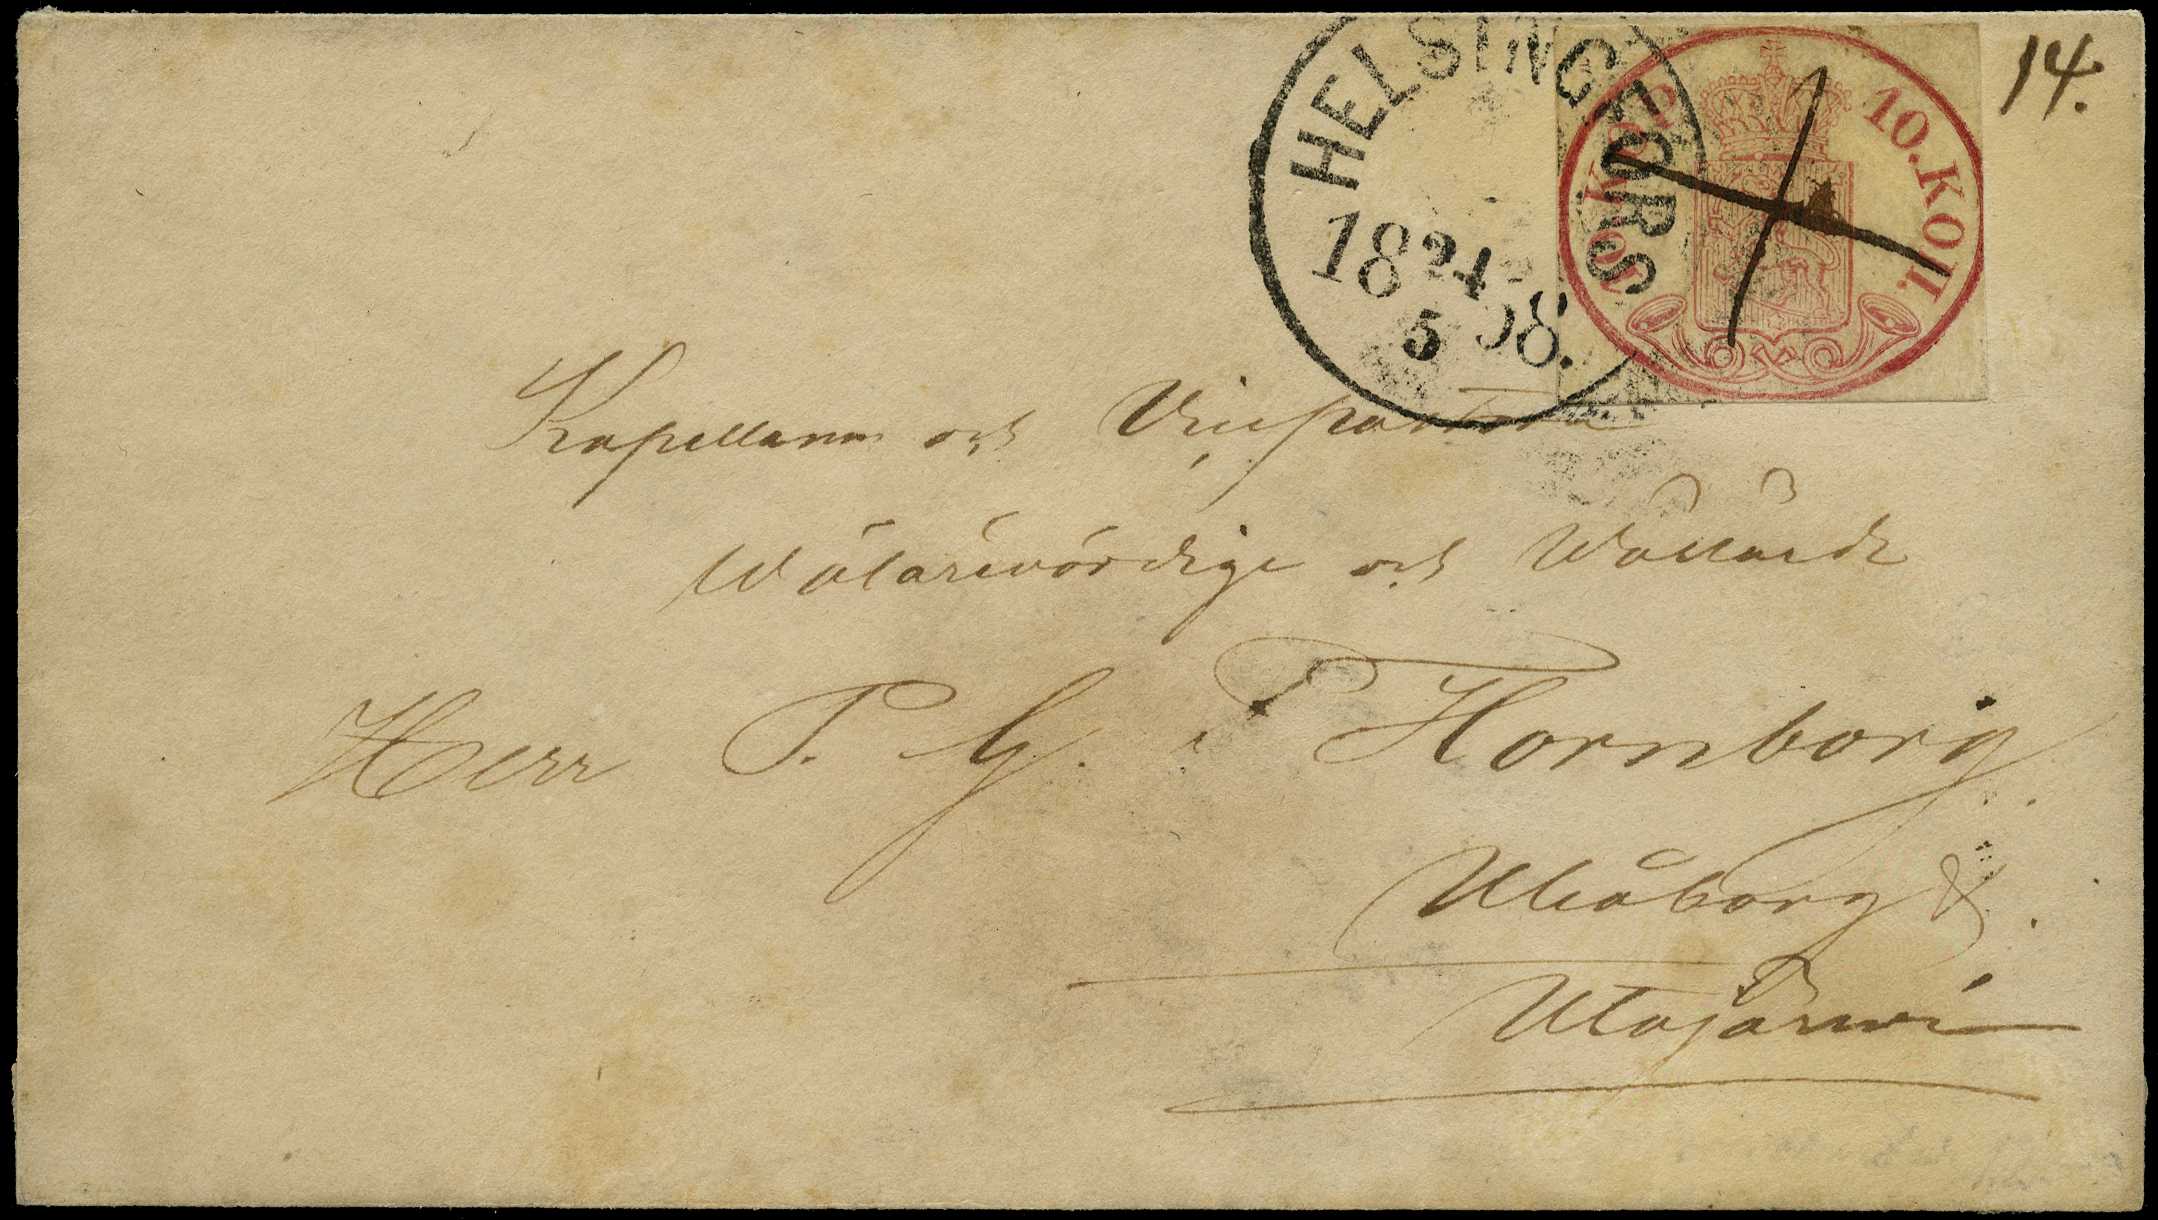 HELSINGFORS
1824 58.
5
10 KOP. 10. КОП.
14.
Kapellanen och Vicepastorn
Wälärewördige och Wällärde
Herr P. G. Hornborg.
Uleåborg &
Utajärwi